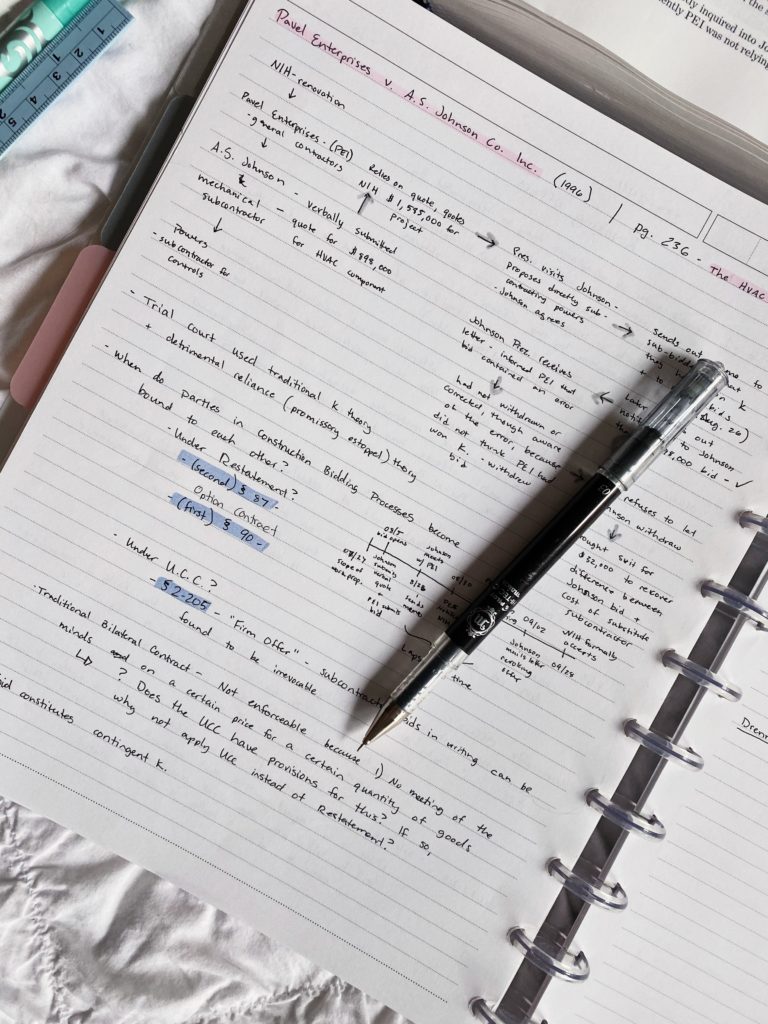 Pavel Enterprises v. A.S. Johnson Co. Inc. (1996) | pg. 236 - The HVAC
NIH-renovation
Pavel Enterprises - (PEI)
- general contractors
A.S. Johnson - verbally submitted
mechanical - quote for $898,000
subcontractor for HVAC component
Powers
- subcontractor for
controls
Relies on quote, quotes
NIH $1,585,000 for
project
Pres. visits Johnson -
proposes directly sub-
contracting powers
- Johnson agrees
sends out
sub-bidd
they
+ to
Aug. 26)
Later
out
to Johnson
8,000 bid - ✓
Johnson Prez. receives
letter - informed PEI that
bid contained an error
had not withdrawn or
corrected, though aware
of the error, because
did not think PEI had
won k. - withdrew
bid
refuses to let
Johnson withdraw
suit for
$32,000 to recover
difference between
Johnson bid +
cost of substitute
subcontractor
- Trial court used traditional k theory
+ detrimental reliance (promissory estoppel) theory
- When do parties in Construction Bidding Processes become
bound to each other?
- Under Restatement?
- (second) § 87 -
Option Contract
- (first) § 90 -
08/5
bid opens
Johnson
meets
w/ PEI
Johnson
submits
verbal
quote
PEI submits
bid
09/02
Johnson
mails letter
revoking
offer
NIH formally
accepts
09/28
time
- Under U.C.C.?
- § 2-205 - "Firm Offer" - subcontract bids in writing can be
found to be irrevocable
- Traditional Bilateral Contract - Not enforceable because 1) No meeting of the
minds on a certain price for a certain quantity of goods
? Does the UCC have provisions for this? If so,
why not apply UCC instead of Restatement?
constitutes contingent k.
inquired into
PEI was not relying